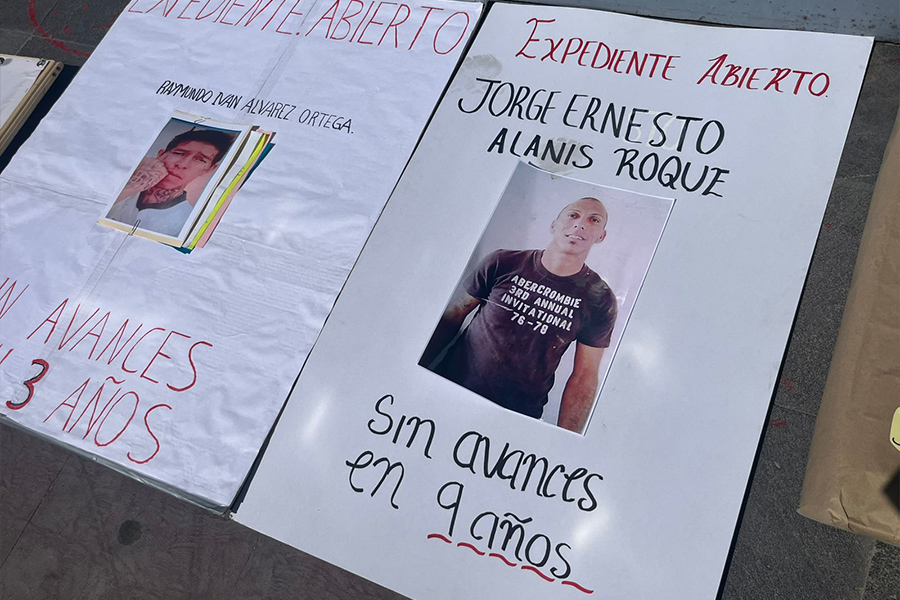 EXPEDIENTE ABIERTO
RAYMUNDO IVAN ALVAREZ ORTEGA.
AVANCES
3 AÑOS
EXPEDIENTE ABIERTO.
JORGE ERNESTO
ALANIS ROQUE
ABERCROMBIE
3RD ANNUAL
INVITATIONAL
76-78
Sin avances
en 9 años